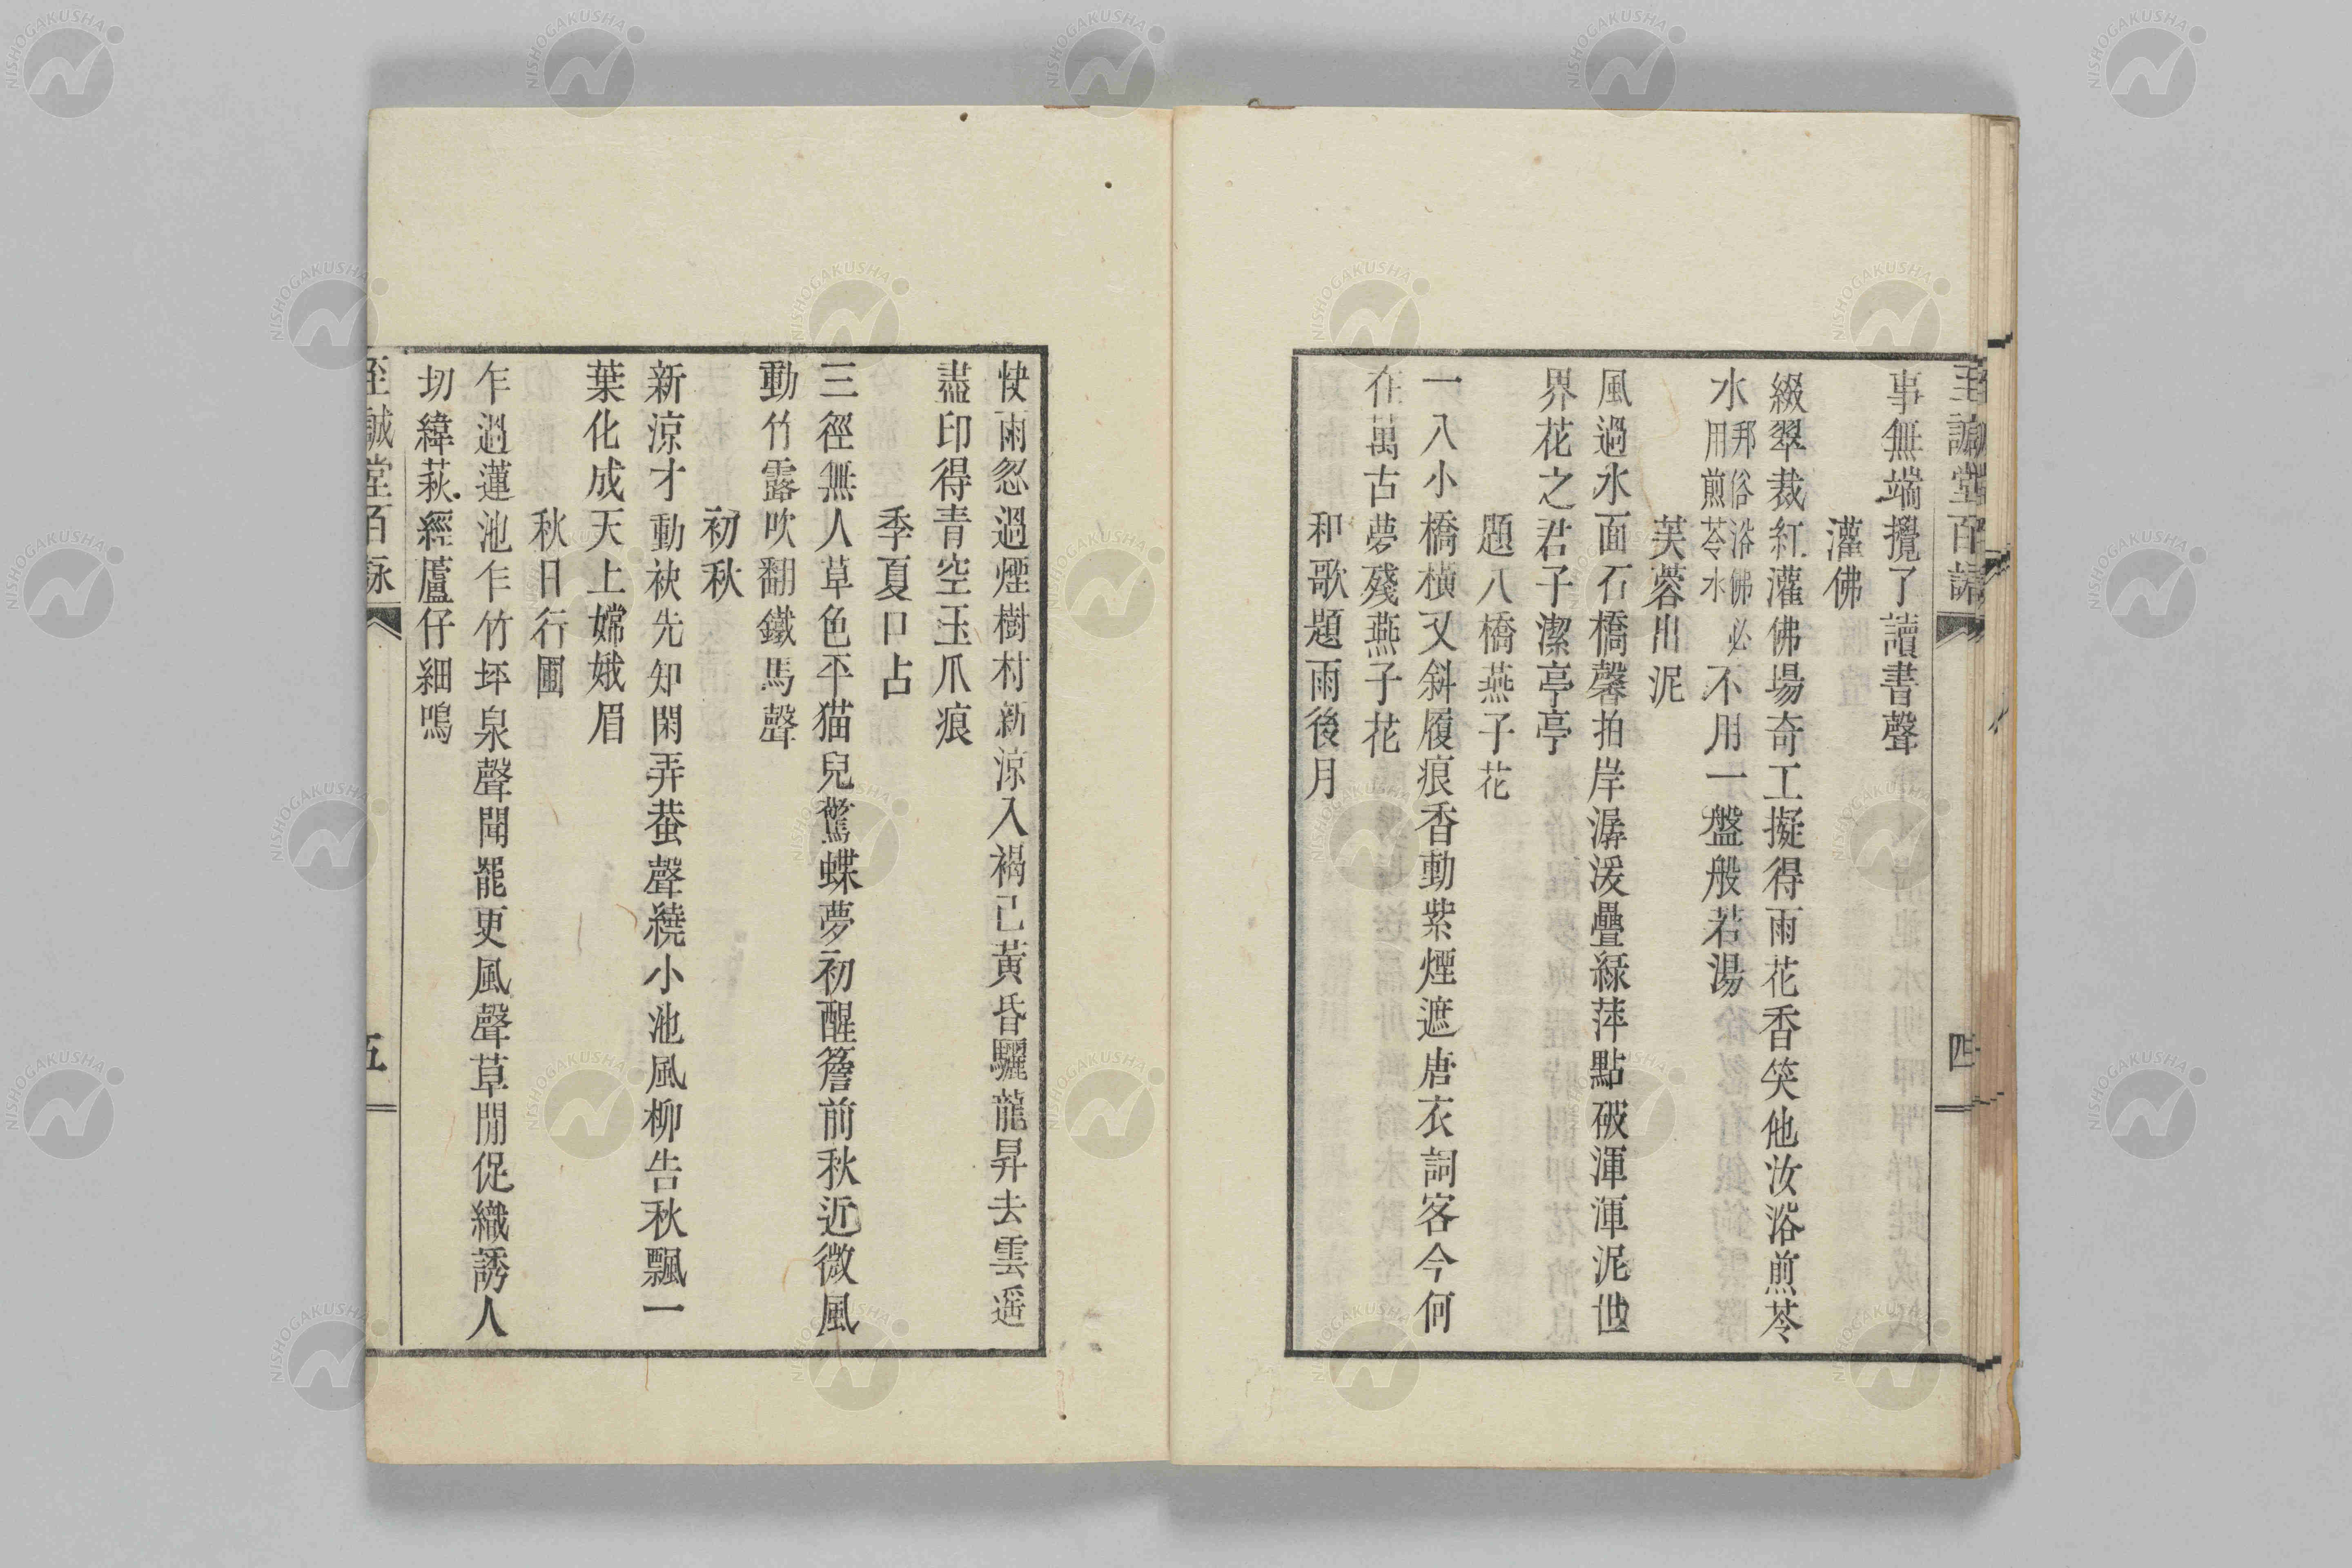 至誠堂百詠
四
事無端攪了讀書聲
灌佛
綴翠裁紅灌佛場奇工擬得雨花香笑他汝浴煎苓
水邦俗浴佛必用煎苓水不用一盤般若湯
芙蓉出泥
風過水面石橋馨拍岸潺湲疊綠萍點破渾渾泥世
界花之君子潔亭亭
題八橋燕子花
一八小橋橫又斜履痕香動紫煙遮唐衣詞客今何
在萬古夢殘燕子花
和歌題雨後月
快雨忽過煙樹村新涼入褐已黃昏驪龍昇去雲遥
盡印得青空玉爪痕
季夏口占
三徑無人草色平猫兒驚蝶夢初醒簷前秋近微風
動竹露吹翻鐵馬聲
初秋
新涼才動袂先知閑弄蛬聲繞小池風柳告秋飄一
葉化成天上嫦娥眉
秋日行圃
乍過蓮池乍竹坪泉聲聞罷更風聲草間促織誘人
切緯萩經蘆仔細鳴
至誠堂百詠
五
NISHOGAKUSHA